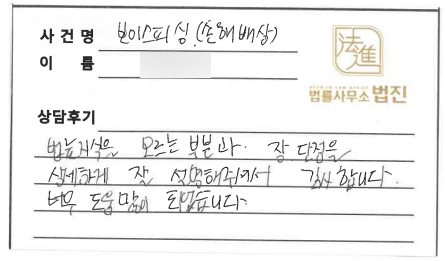 사 건 명 보이스피싱.(손해배상)
이 름
法進
법률사무소 법진
상담후기
법률지식은 모르는 부분과. 장 단점을
상세하게 잘 설명해줘서 감사합니다.
너무 도움많이 되었습니다